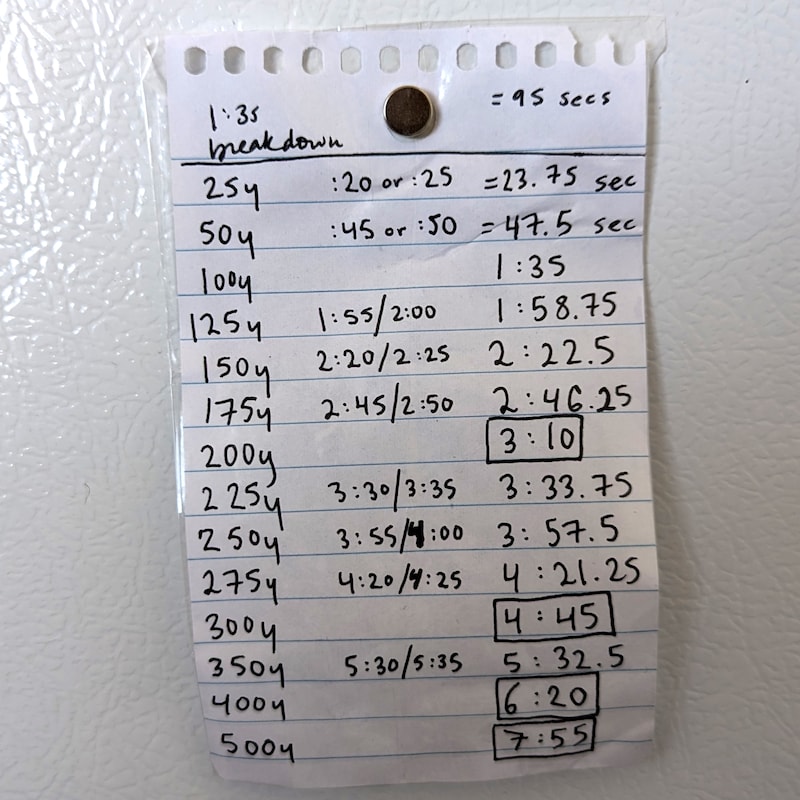 1:35 = 95 secs
breakdown
25y :20 or :25 = 23.75 sec
50y :45 or :50 = 47.5 sec
100y 1:35
125y 1:55/2:00 1:58.75
150y 2:20/2:25 2:22.5
175y 2:45/2:50 2:46.25
200y 3:10
225y 3:30/3:35 3:33.75
250y 3:55/4:00 3:57.5
275y 4:20/4:25 4:21.25
300y 4:45
350y 5:30/5:35 5:32.5
400y 6:20
500y 7:55